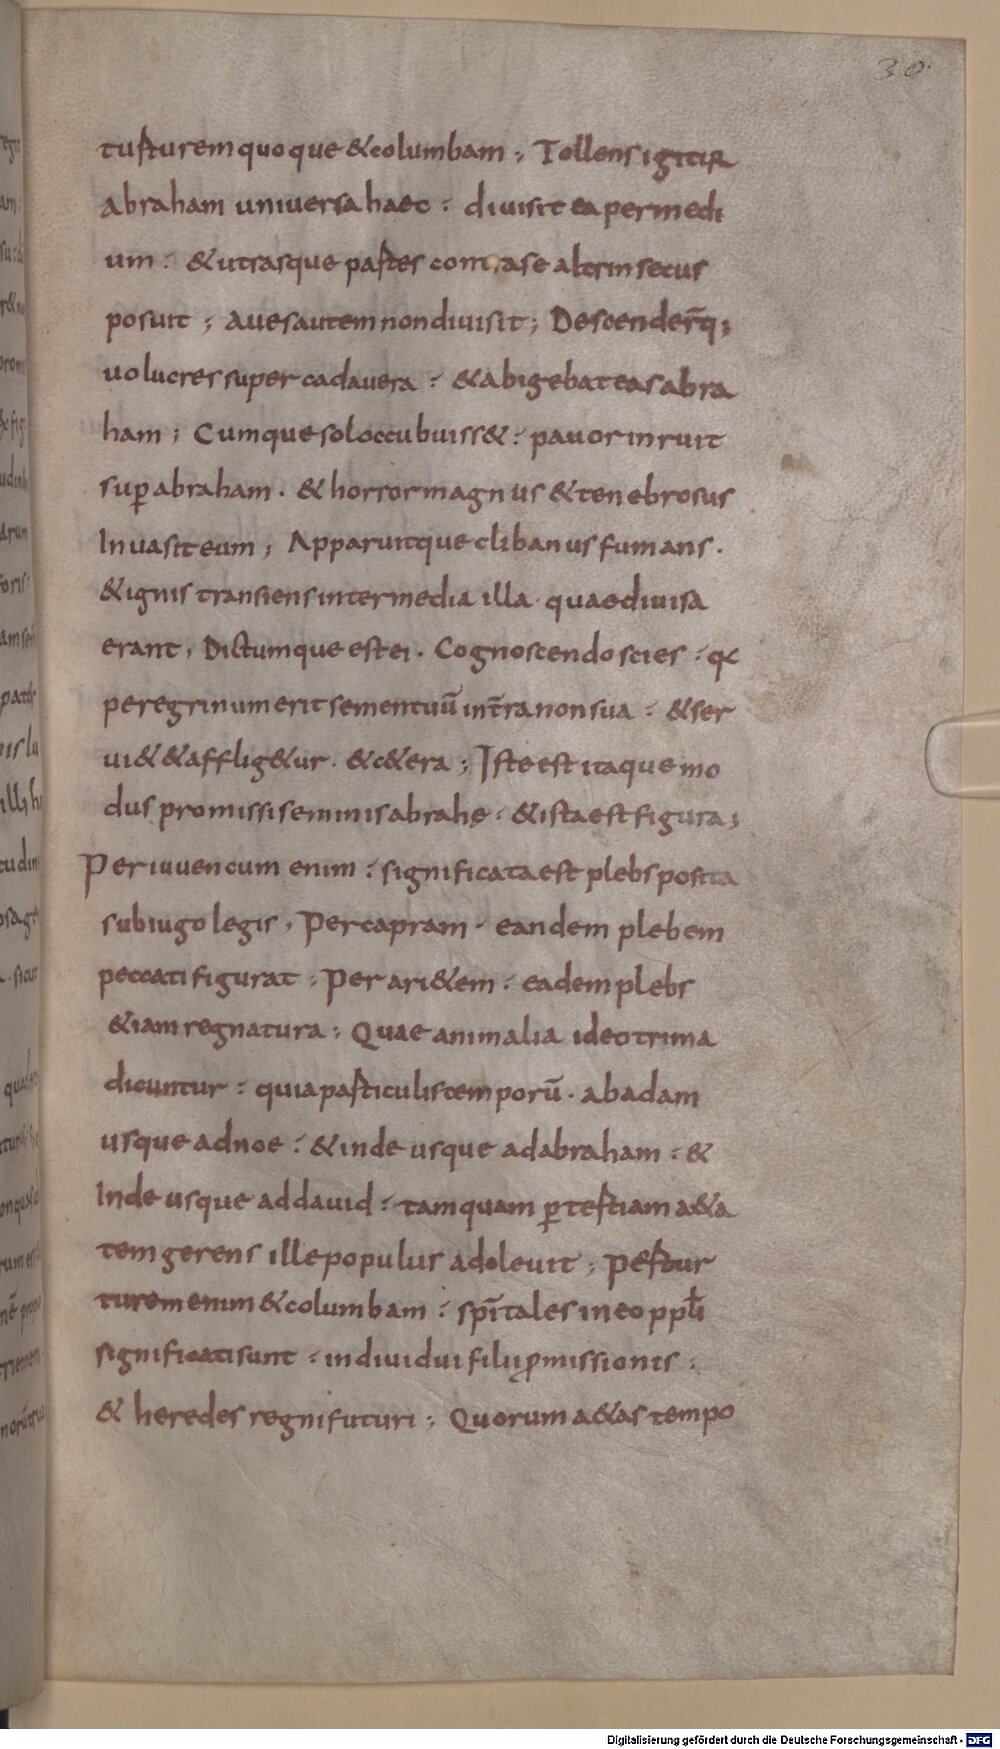 30.
turturem quoque & columbam ; Tollens igitur
abraham universa haec : divisit ea per medi
um : & utrasque partes contra se altrinsecus
posuit ; aves autem non divisit ; Descender̄q;
volucres super cadavera : & abigebat eas abra
ham ; Cumque sol occubuiss& : pavor inruit
sup̱ abraham . & horror magnus & tenebrosus
Invasit eum ; Apparuitque clibanus fumans .
& ignis transiens inter media illa . quae divisa
erant , Dictumque est ei . Cognoscendo scies : qđ
peregrinum erit sementuū in t̄ra non sua : & ser
vi& & afflig&ur . & c&era ; Iste est itaque mo
dus promissi seminis abrahę . & ista est figura ;
Per iuvencum enim : significata est plebs posita
sub iugo legis , Per capram . eandem plebem
peccati figurat ; Per ari&em : eadem plebs
&iam regnatura ; Quae animalia ideo trima
dicuntur : quia particulis temporū . ab adam
usque ad noe : & inde usque ad abraham : &
Inde usque ad david : tamquam p̱ tertiam a&a
tem gerens ille populus adolevit ; Per tur
turem enim & columbam : sp̄itales in eo ppłi
significati sunt : individui filii ꝓmissionis :
& heredes regni futuri ; Quorum a&as tempo
Digitalisierung gefördert durch die Deutsche Forschungsgemeinschaft - DFG